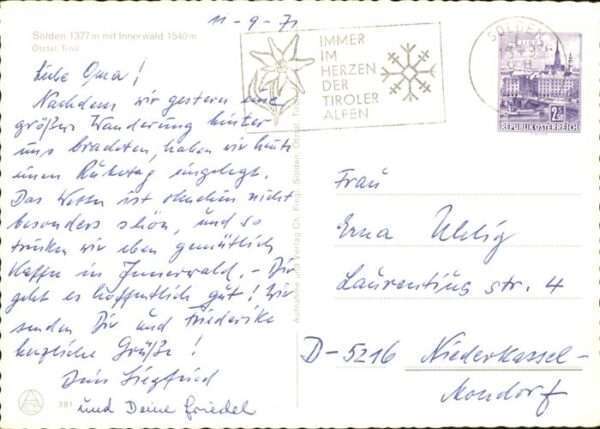 11-9-71
Sölden 1377 m mit Innerwald 1540 m
Ötztal Tirol
Liebe Oma!
Nachdem wir gestern eine
größere Wanderung hinter
uns brachten, haben wir heute
einen Ruhetag eingelegt.
Das Wetter ist ohnehin nicht
besonders schön, und so
trinken wir eben gemütlich
Kaffee in Innerwald. - Dir
geht es hoffentlich gut! Wir
senden Dir und Friederike
herzliche Grüße!
Dein Siegfried
und Deine Friedel
381
IMMER
IM
HERZEN
DER
TIROLER
ALPEN
2.-
REPUBLIK ÖSTERREICH
Frau
Erna Uhlig
Laurentius str. 4
D-5216 Niederkassel-
Mondorf